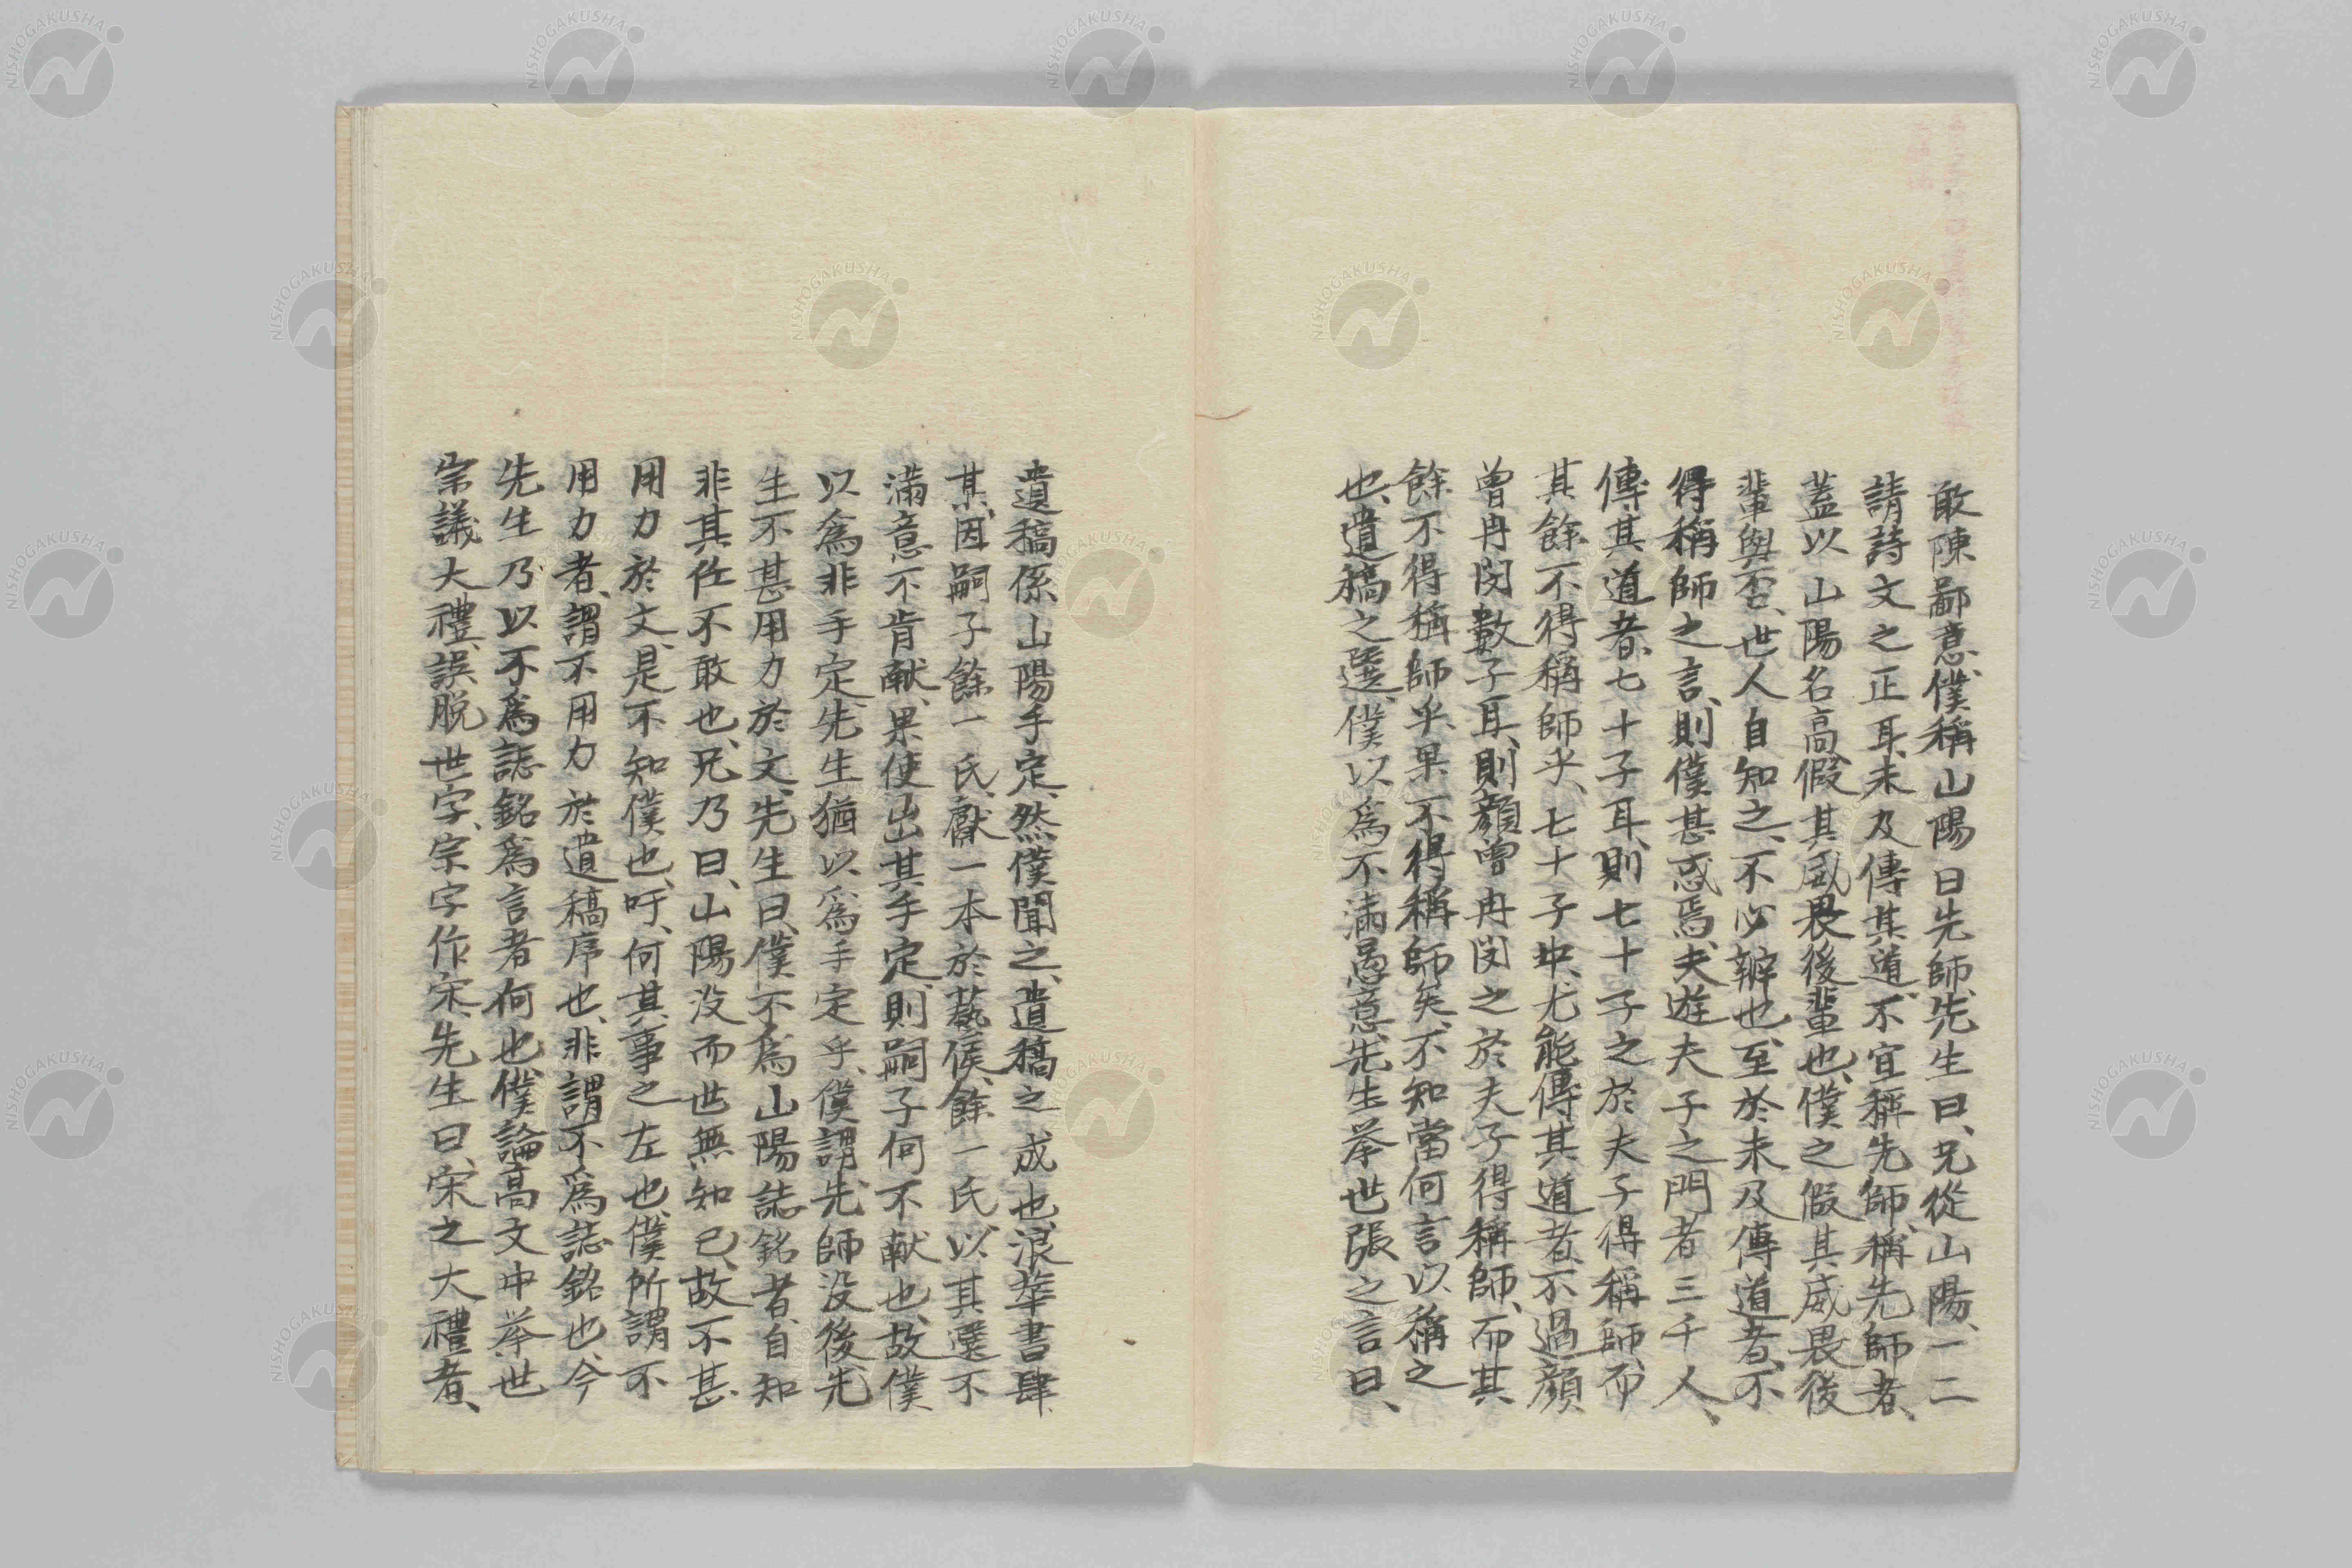 敢陳鄙意、僕稱山陽曰先師、先生曰、兄從山陽、一二
請詩文之正耳、未及傳其道、不宜稱先師、稱先師者、
蓋以山陽名高、假其威畏後輩也、僕之假其威畏後
輩與否、世人自知之、不必辨也、至於未及傳道者、不
得稱師之言、則僕甚惑焉、夫遊夫子之門者三千人、
傳其道者、七十子耳、則七十子之於夫子得稱師、而
其餘不得稱師乎、七十子中、尤能傳其道者、不過顔
曾冉閔數子耳、則顔曾冉閔之於夫子得稱師、而其
餘不得稱師乎、果不得稱師矣、不知當何言以稱之
也、遺稿之選、僕以爲不滿愚意、先生举世張之言曰、
遺稿係山陽手定、然僕聞之、遺稿之成也、浪華書肆
某、因嗣子餘一氏、獻一本於藝侯、餘一氏以其選不
滿意不肯献、果使出其手定、則嗣子何不献也、故僕
以爲非手定、先生猶以爲手定乎、僕謂先師没後、先
生不甚用力於文、先生曰、僕不爲山陽誌銘者、自知
非其任不敢也、兄乃曰、山陽没而世無知己、故不甚
用力於文、是不知僕也、吁、何其事之左也、僕所謂不
用力者、謂不用力於遺稿序也、非謂不爲誌銘也、今
先生乃以不爲誌銘爲言者何也、僕論高文中举世
宗議大禮、誤脱世字、宗字作宋、先生曰、宋之大禮者、
NISHOGAKUSHA